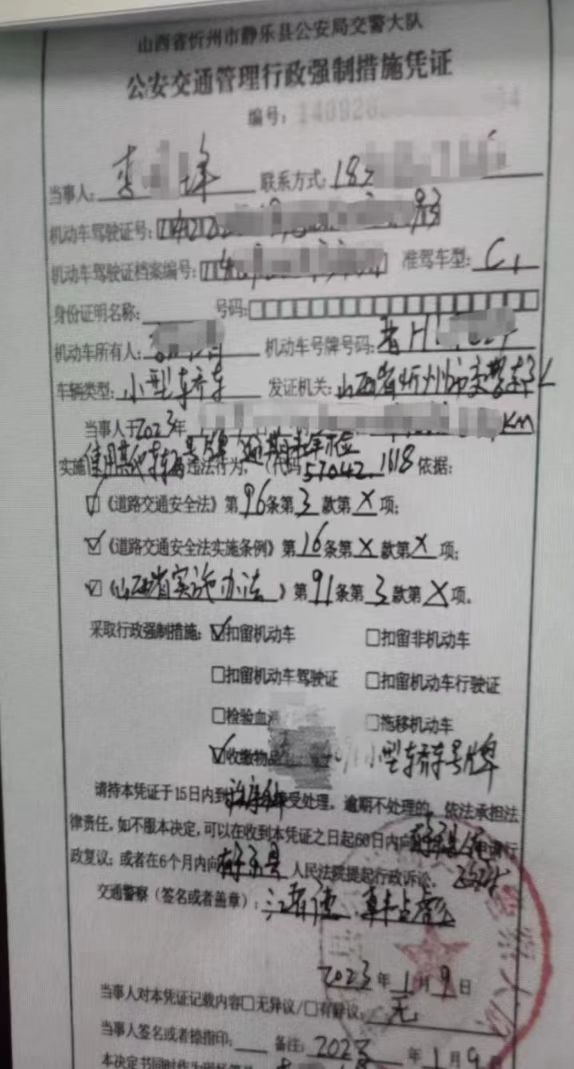 山西省忻州市静乐县公安局交警大队
公安交通管理行政强制措施凭证
编号：140926
当事人：李 峰 联系方式：18
机动车驾驶证号：142 83
机动车驾驶证档案编号：14 准驾车型：C1
身份证明名称： 号码：
机动车所有人： 机动车号牌号码：H
车辆类型：小型轿车 发证机关：山西省忻州市交警支队
当事人于2023年 KM
实施使用其他车辆号牌 逾期未年检违法行为，（代码57042.1118依据：
☑《道路交通安全法》第96条第3款第X项；
☑《道路交通安全法实施条例》第16条第X款第X项；
☑《山西省实施办法》第91条第3款第X项。
采取行政强制措施：☑扣留机动车 □扣留非机动车
□扣留机动车驾驶证 □扣留机动车行驶证
□检验血 □拖移机动车
☑收缴物品 小型轿车号牌
请持本凭证于15日内到 接受处理，逾期不处理的，依法承担法
律责任，如不服本决定，可以在收到本凭证之日起60日内向静乐县 申请行
政复议；或者在6个月内向静乐县人民法院提起行政诉讼。
交通警察（签名或者盖章）：
2023年1月9日
当事人对本凭证记载内容□无异议/□有异议：无
当事人签名或者捺指印： 备注：2023年1月9日
本决定书同时作为现场笔